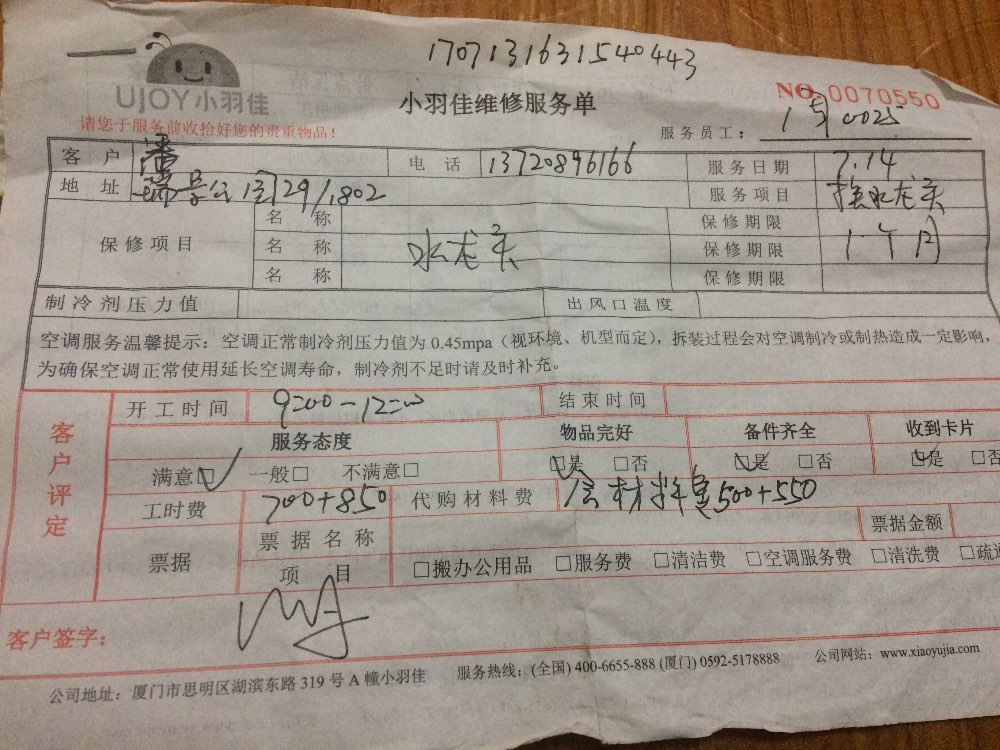 1707131631540443
UJOY小羽佳
小羽佳维修服务单
NO.0070550
请您于服务前收拾好您的贵重物品！
服务员工：
客户 潘 电话 13720896166 服务日期 7.14
地址 瑞景公 29/1802 服务项目 换水龙头
保修项目 名称 保修期限
名称 水龙头 保修期限 1个月
名称 保修期限
制冷剂压力值 出风口温度
空调服务温馨提示：空调正常制冷剂压力值为 0.45mpa（视环境、机型而定），拆装过程会对空调制冷或制热造成一定影响，
为确保空调正常使用延长空调寿命，制冷剂不足时请及时补充。
客户评定
开工时间 9:00-12:00 结束时间
服务态度 物品完好 备件齐全 收到卡片
满意□ 一般□ 不满意□ □是 □否 □是 □否 □是 □否
工时费 700+850 代购材料费 含材料室500+550
票据 票据名称 票据金额
项目 □搬办公用品 □服务费 □清洁费 □空调服务费 □清洗费 □疏通
客户签字：
公司地址：厦门市思明区湖滨东路 319 号 A 幢小羽佳 服务热线：(全国) 400-6655-888 (厦门) 0592-5178888 公司网站：www.xiaoyujia.com